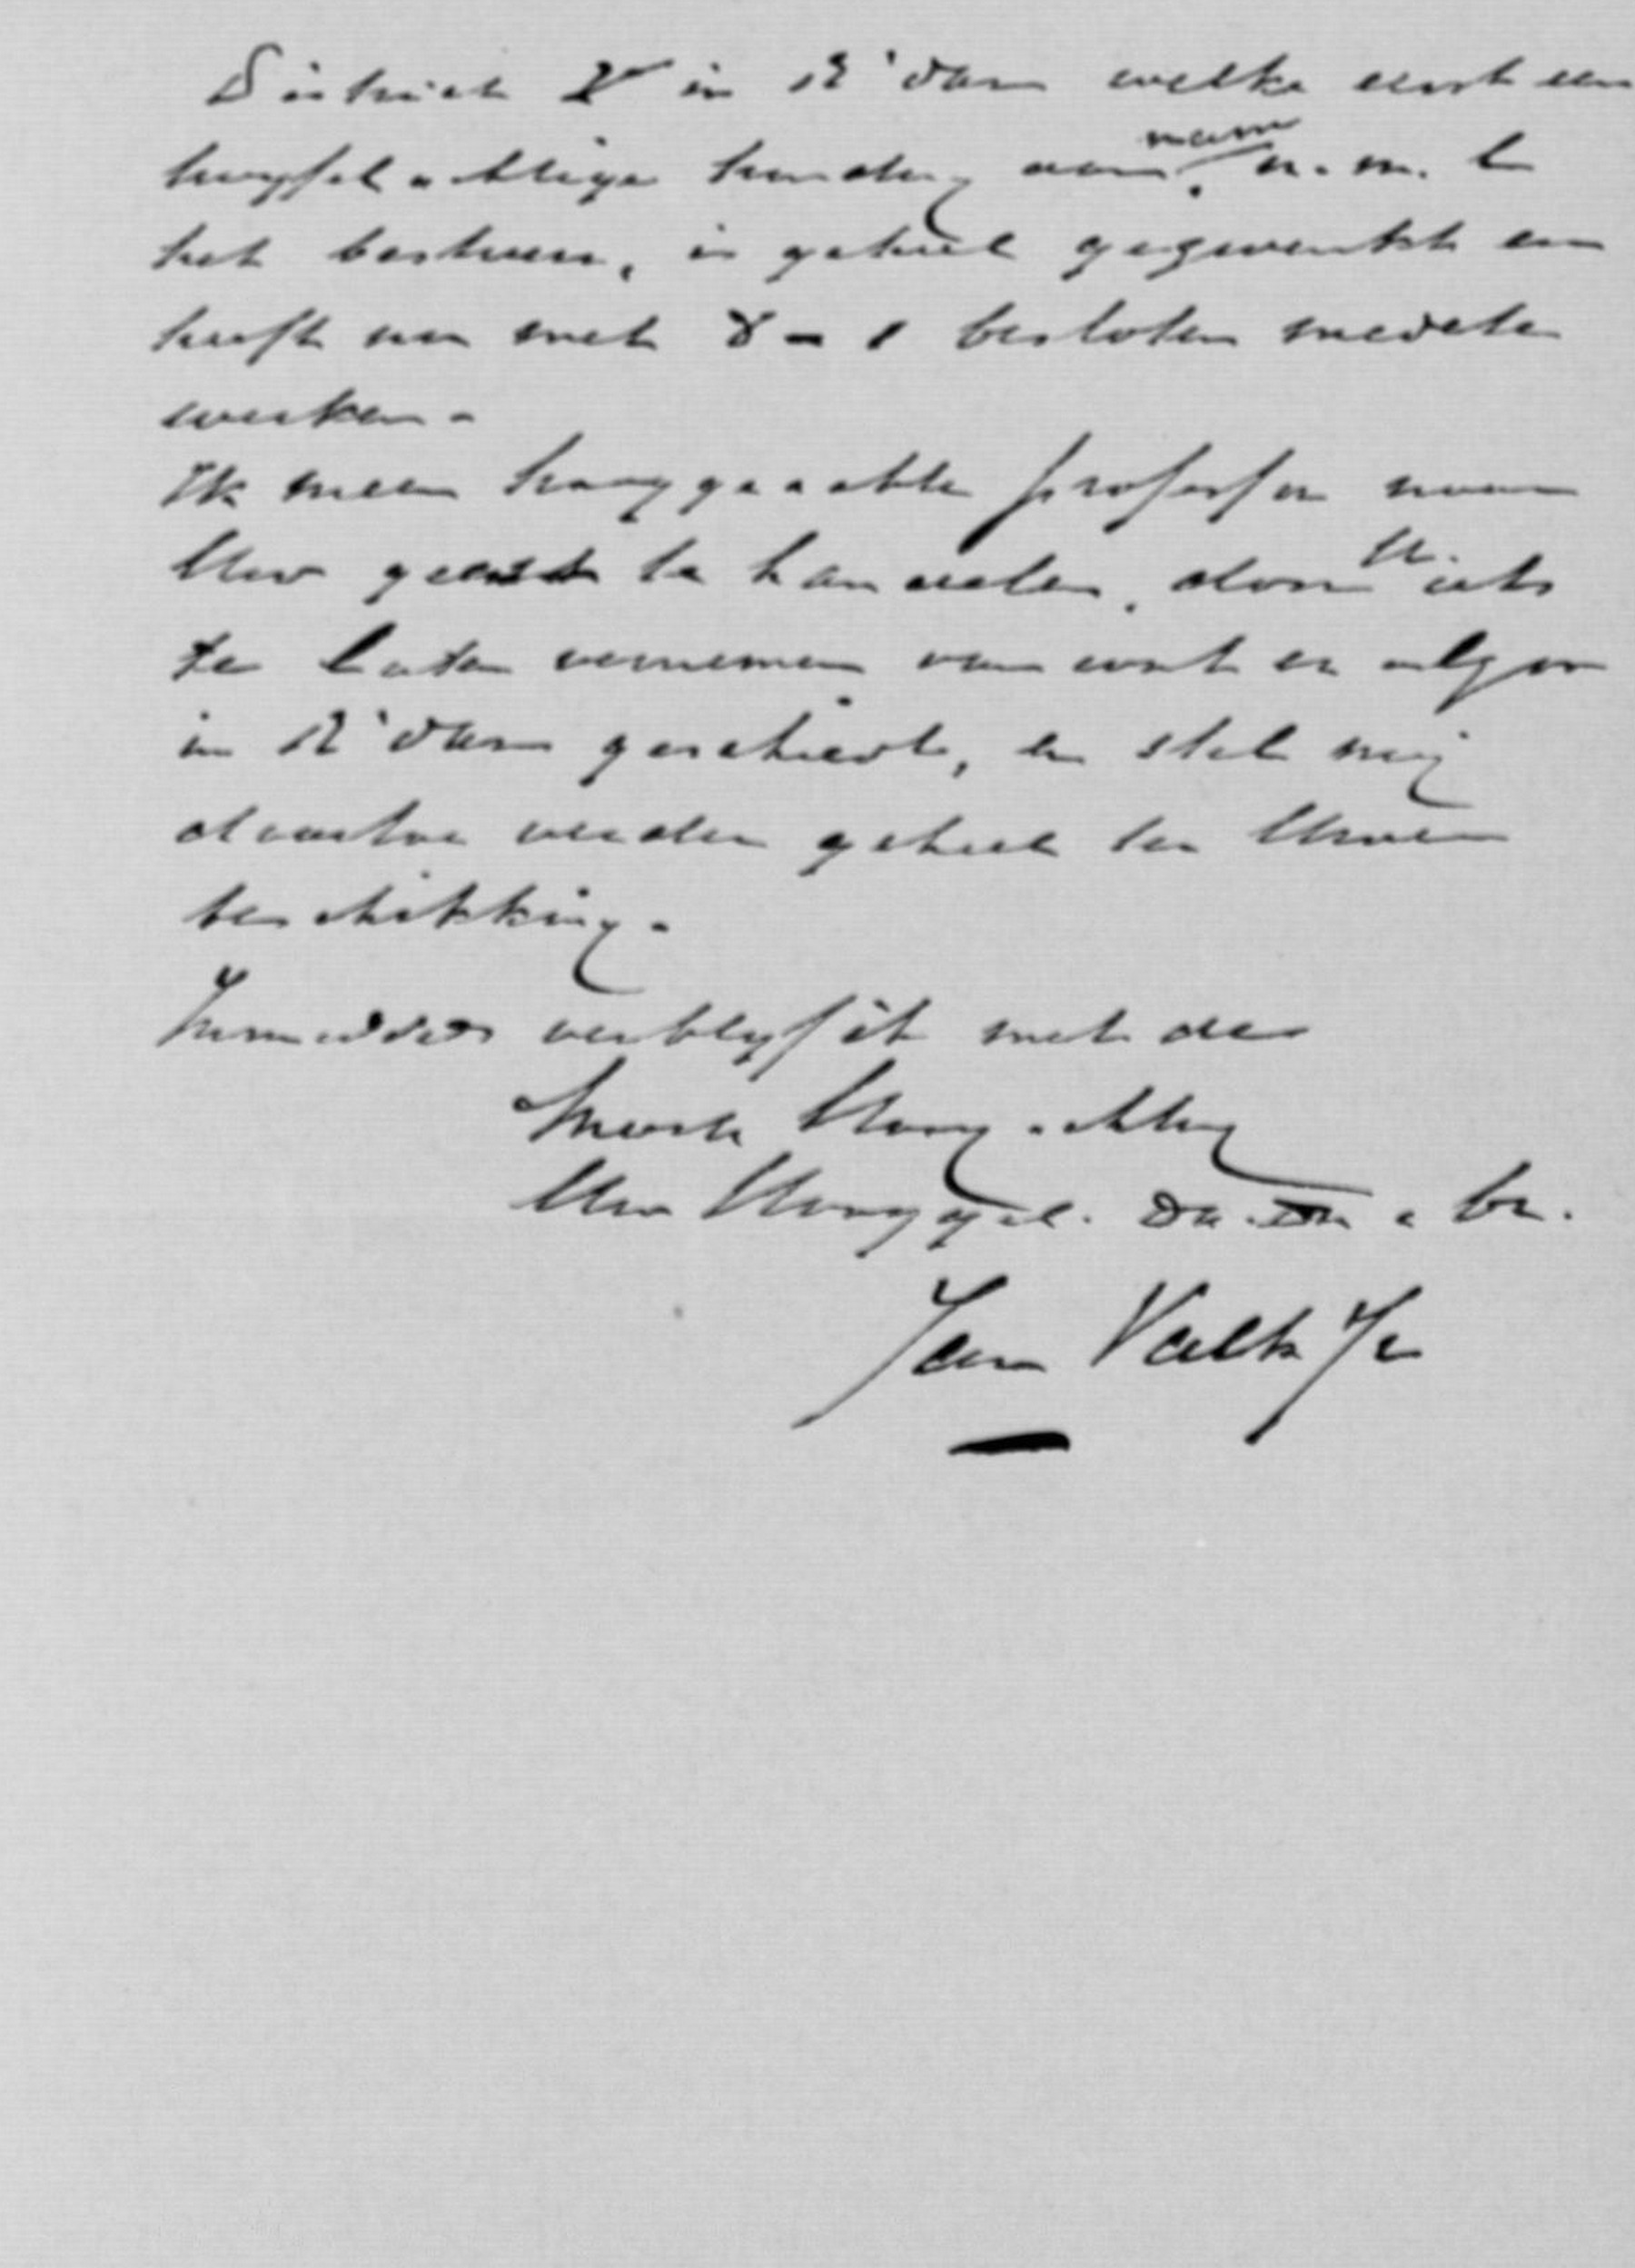 District V in R'dam welke eerst een
twyfelachtige houding aan nam n.m.l
het bestuur, is geheel gezwenkt en
heeft nu met 8 - 1 besloten mede te
werken -
Ik meen hooggeachte professor naar
Uw geest te handelen, door U. iets
te laten vernemen van wat er alzoo
in R'dam geschiedt, en stel mij
daartoe verder geheel ter Uwer
beschikking.
Inmiddels verblyf ik met de
meeste Hoogachting
Uw Hooggel. Dw. Dn. & br.
Jan Valk Jr